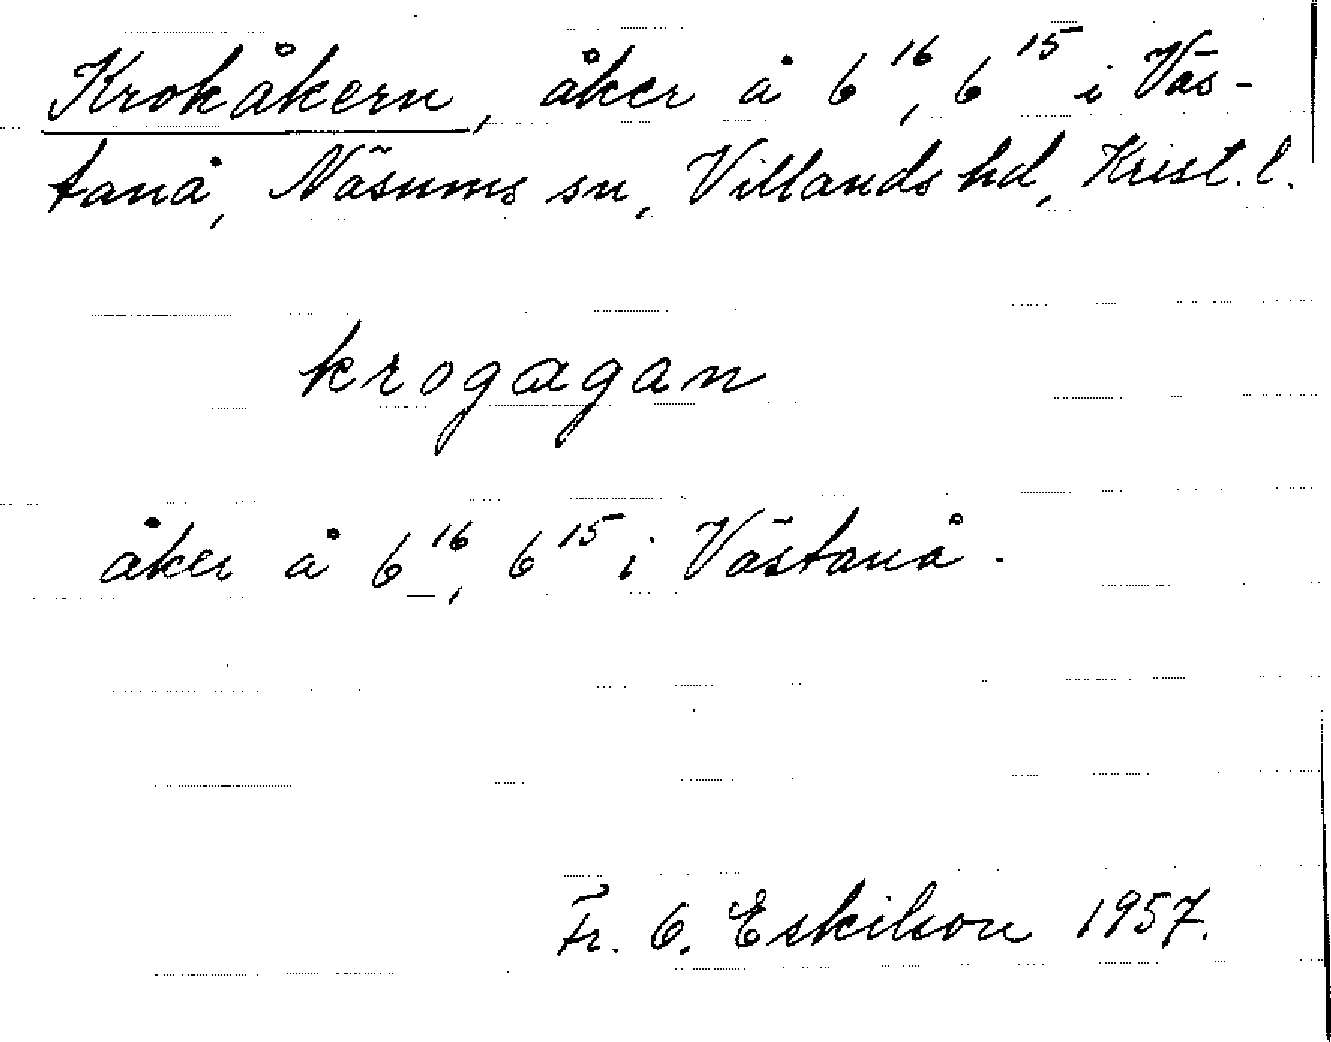 Krokåkern, åker å 6¹⁶, 6¹⁵ i Väs-
tanå, Näsums sn, Villands hd, Krist. l.
krogagan
åker å 6¹⁶, 6¹⁵ i Västanå.
Fr. G. Eskilson 1957.